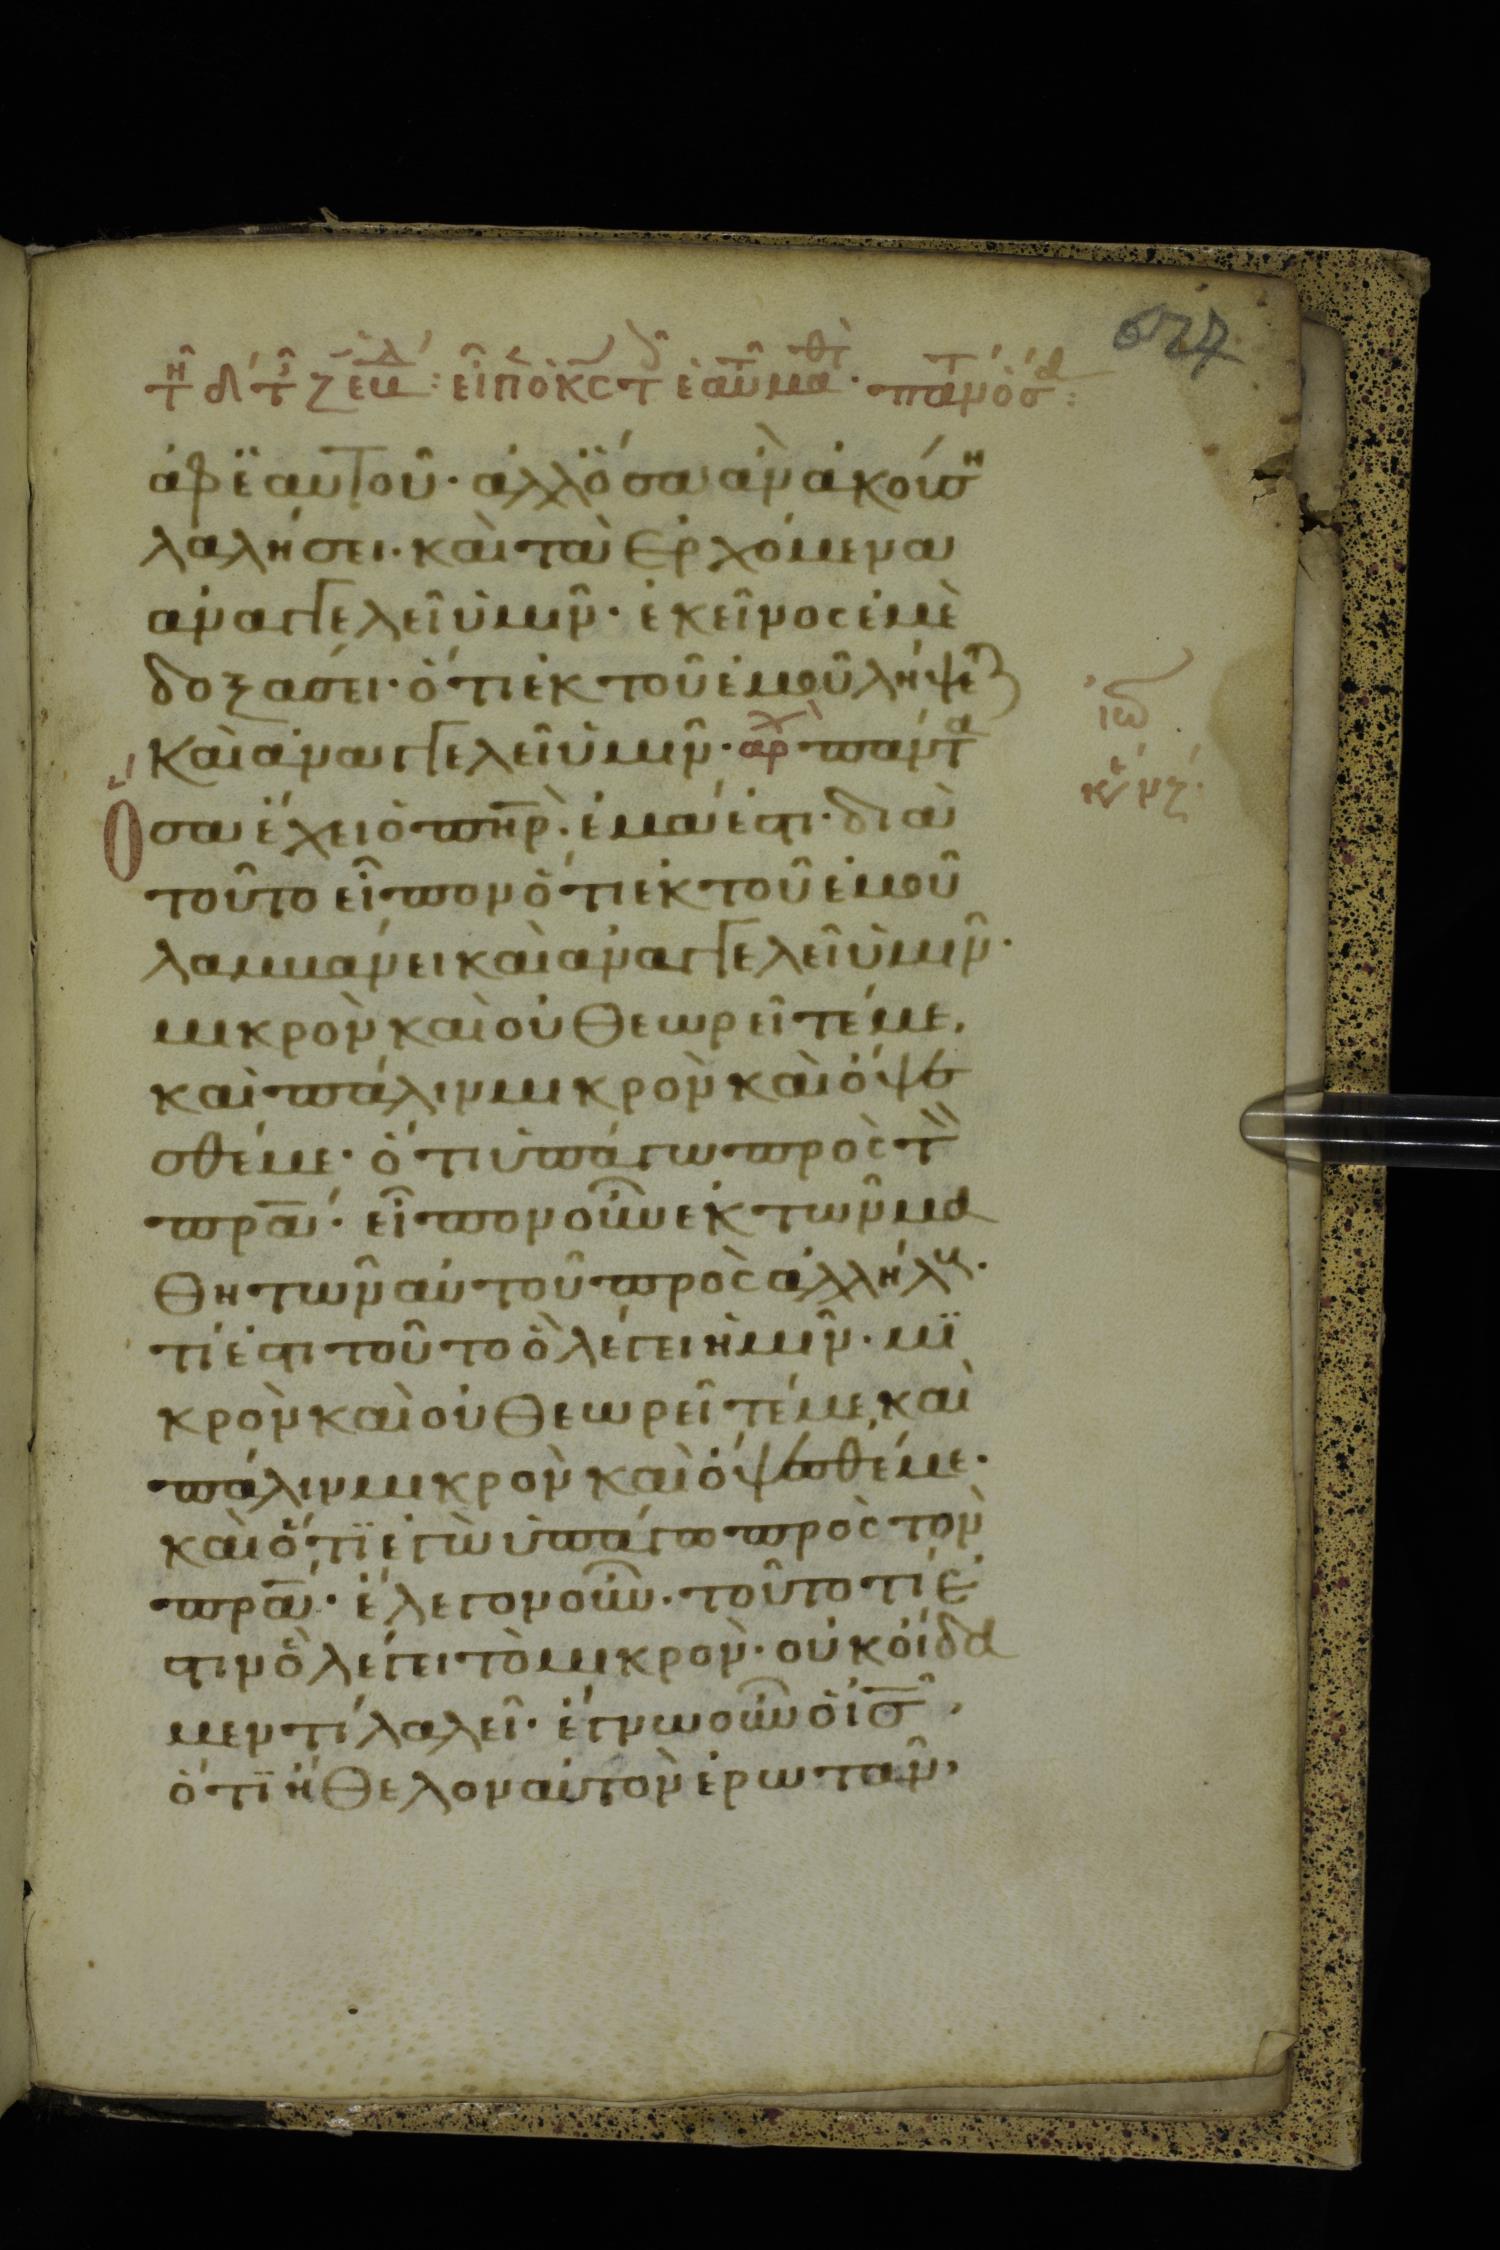 τῆ δ τ ζ εβδ: εἶπ ὁ κς τ ἑαυτ μαθτ· πάντ ὅσα:
ἀφ' ἑαυτοῦ· ἀλλ' ὅσα ἀν ἀκούση
λαλήσει· καὶ τὰ ἐρχόμενα
ἀναγγελεῖ ὑμῖν· ἐκεῖνος ἐμὲ
δοξάσει· ὅτι ἐκ τοῦ ἐμοῦ λήψεται
καὶ ἀναγγελεῖ ὑμῖν· αρχ πάντα
Ὅσα ἔχει ὁ πηρ· ἐμά ἐστι· διὰ
τοῦτο εἶπον ὅτι ἐκ τοῦ ἐμοῦ
λαμβάνει καὶ ἀναγγελεῖ ὑμῖν·
μικρὸν καὶ οὐ θεωρεῖτέ με,
καὶ πάλιν μικρὸν καὶ ὄψε
σθέ με· ὅτι ὑπάγω πρὸς τὸν
πρα· εἶπον οὖν ἐκ τῶν μα
θητῶν αὐτοῦ πρὸς ἀλλήλους·
τί ἐστι τοῦτο ὃ λέγει ἡμῖν· μϊ
κρὸν καὶ οὐ θεωρεῖτέ με, καὶ
πάλιν μικρὸν καὶ ὄψεσθέ με·
καὶ ὅτϊ ἐγὼ ὑπάγω πρὸς τὸν
πρα· ἔλεγον οὖν· τοῦτο τί ἐ
στιν ὃ λέγει τὸ μικρὸν· οὐκ οἴδα
μεν τί λαλεῖ· ἔγνω οὖν ὁ ις,
ὅτϊ ἤθελον αὐτὸν ἐρωτᾶν,
ιω